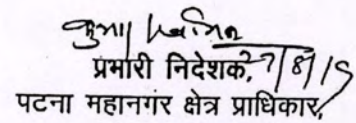 प्रभारी निदेशक,
27/8/15
पटना महानगर क्षेत्र प्राधिकार,